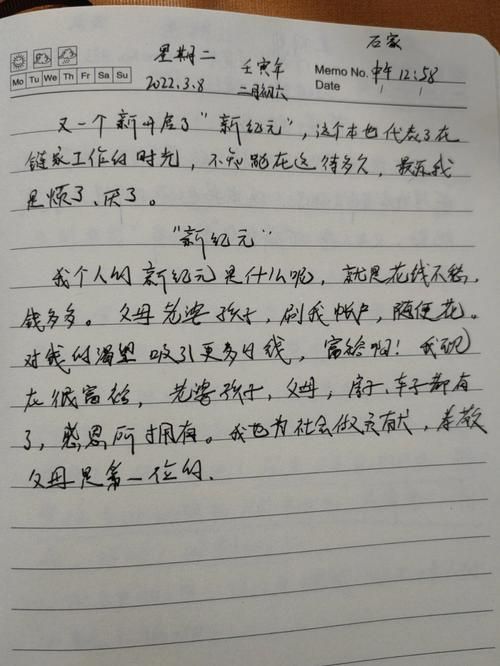 石家
星期二 壬寅年 Memo No. 中午 12:58
Mo Tu We Th Fr Sa Su 2022.3.8 二月初六 Date / /
又一个新开启了“新纪元”,这个本也代表了在
链家工作的时光,不知能在这待多久,最近我
是烦了、厌了。
“新纪元”
我个人的新纪元是什么呢,就是花钱不愁,
钱多多。父母老婆孩子,刷我帐户,随便花。
对钱的渴望吸引更多的钱,富裕啊!我现
在很富裕,老婆孩子,父母,房子、车子都有
了,感恩所拥有。我也为社会做贡献,孝敬
父母是第一位的.